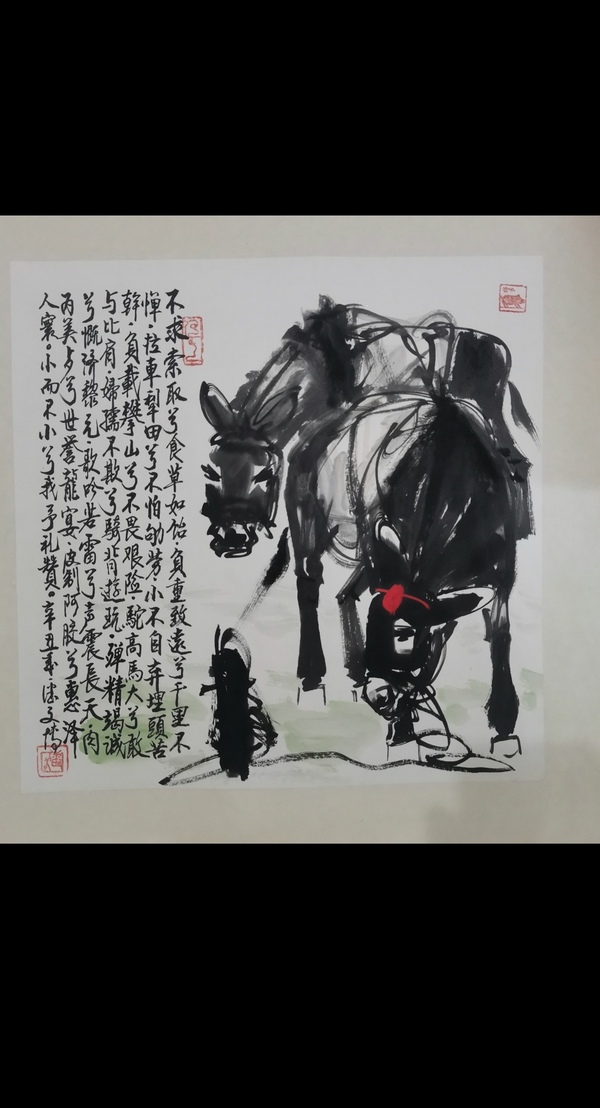 不求索取兮食草如饴·负重致遠兮千里不
惮·拉車犁田兮不怕劬劳·小不自弃埋頭苦
幹·負載攀山兮不畏艰险·駝高馬大兮敢
与比肩·婦孺不欺兮騎背遊玩·殚精竭诚
兮慨济黎元·歌吟若雷兮声震長天·肉
为美与兮世誉龍宴·皮割阿胶兮惠泽
人寰·小而不小兮我予礼赞。辛丑文博